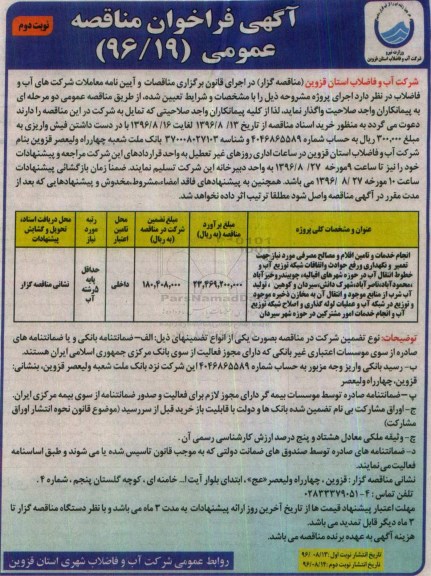 آگهی فراخوان مناقصه
عمومی (۹۶/۱۹)
نوبت دوم
وزارت نیرو
شرکت آب و فاضلاب استان قزوین
شرکت آب و فاضلاب استان قزوین (مناقصه گزار) در اجرای قانون برگزاری مناقصات و آیین نامه معاملات شرکت های آب و
فاضلاب در نظر دارد اجرای پروژه مشروحه ذیل را با مشخصات و شرایط تعیین شده، از طریق مناقصه عمومی دو مرحله ای
به پیمانکاران واجد صلاحیت واگذار نماید، لذا از کلیه پیمانکاران واجد صلاحیتی که تمایل به شرکت در این مناقصه را دارند
دعوت می گردد به منظور خرید اسناد مناقصه از تاریخ ۱۳/ ۱۳۹۶/۸ لغایت ۱۳۹۶/۸/۱۶ با در دست داشتن فیش واریزی به
مبلغ ۳۰۰،۰۰۰ ریال به حساب شماره ۴۰۴۶۸۶۵۵۸۹ و شناسه ۳۷۰۰۰۸۰۲۷۱۰۳ بانک ملت شعبه چهارراه ولیعصر قزوین بنام
شرکت آب و فاضلاب استان قزوین در ساعات اداری روزهای غیر تعطیل به واحد قراردادهای این شرکت مراجعه و پیشنهادات
خود را نیز تا ساعت ۹ مورخه ۲۷/ ۱۳۹۶/۸ به واحد دبیرخانه این شرکت تسلیم نمایند. ضمناً زمان بازگشائی پیشنهادات
ساعت ۱۰ مورخه ۲۷/ ۸/ ۱۳۹۶ می باشد. همچنین به پیشنهادهای فاقد امضاء،مشروط،مخدوش و پیشنهادهایی که بعد از
مدت مقرر در آگهی مناقصه واصل شود مطلقا ترتیب اثر داده نخواهد شد.
عنوان و مشخصات کلی پروژه
مبلغ برآورد مناقصه (به ریال)
مبلغ تضمین شرکت در مناقصه (به ریال)
محل تامین اعتبار
رتبه مورد نیاز
محل دریافت اسناد، تحویل و گشایش پیشنهادات
انجام خدمات و تامین اقلام و مصالح مصرفی مورد نیاز جهت
تعمیر و نگهداری و رفع حوادث و اتفاقات شبکه توزیع آب و
خطوط انتقال آب در حوزه شهرهای اقبالیه، چوبیندر و خیزآباد
،محمودآباد،ناصرآباد،شهرک دانش،سیردان و کوهین ، تولید
آب شرب از منابع موجود و انتقال آن به مخازن ذخیره موجود
و توزیع در شبکه آب و عملیات لوله گذاری و اصلاح شبکه توزیع
آب و انجام خدمات امور مشترکین در حوزه شهر سیردان
۲۳،۴۶۹،۲۰۰،۰۰۰
۱۸۰،۴۰۸،۰۰۰
داخلی
حداقل پایه ۵ رشته آب
نشانی مناقصه گزار
توضیحات: نوع تضمین شرکت در مناقصه بصورت یکی از انواع تضمینهای ذیل: الف–ضمانتنامه بانکی و یا ضمانتنامه های
صادره از سوی موسسات اعتباری غیر بانکی که دارای مجوز فعالیت از سوی بانک مرکزی جمهوری اسلامی ایران هستند.
ب- رسید بانکی واریز وجه مزبور به حساب شماره ۴۰۴۶۸۶۵۵۸۹ این شرکت نزد بانک ملت شعبه ولیعصر قزوین، بنشانی:
قزوین، چهارراه ولیعصر
پ – ضمانتنامه صادره توسط موسسات بیمه گر دارای مجوز لازم برای فعالیت و صدور ضمانتنامه از سوی بیمه مرکزی ایران.
ج- اوراق مشارکت بی نام تضمین شده بانک ها و دولت با قابلیت باز خرید قبل از سررسید (موضوع قانون نحوه انتشار اوراق
مشارکت)
چ- وثیقه ملکی معادل هشتاد و پنج درصد ارزش کارشناسی رسمی آن .
د- ضمانتنامه های صادره توسط صندوق های ضمانت دولتی که به موجب قانون تاسیس شده یا می شوند و طبق اساسنامه
فعالیت می نمایند.
نشانی مناقصه گزار : قزوین، چهارراه ولیعصر«عج»، ابتدای بلوار آیت ا... خامنه ای، کوچه گلستان پنجم ، شماره ۴ .
تلفن تماس: ۴-۰۲۸۳۳۳۷۹۰۵۱
مهلت اعتبار پیشنهاد قیمت ها از تاریخ آخرین روز ارائه پیشنهادات به مدت ۳ ماه می باشد و با نظر دستگاه مناقصه گزار تا
۳ ماه دیگر قابل تمدید می باشد.
هزینه آگهی به عهده برنده مناقصه می باشد.
تاریخ انتشار نوبت اول: ۹۶/۰۸/۱۳
تاریخ انتشار نوبت دوم: ۹۶/۰۸/۱۴
روابط عمومی شرکت آب و فاضلاب شهری استان قزوین